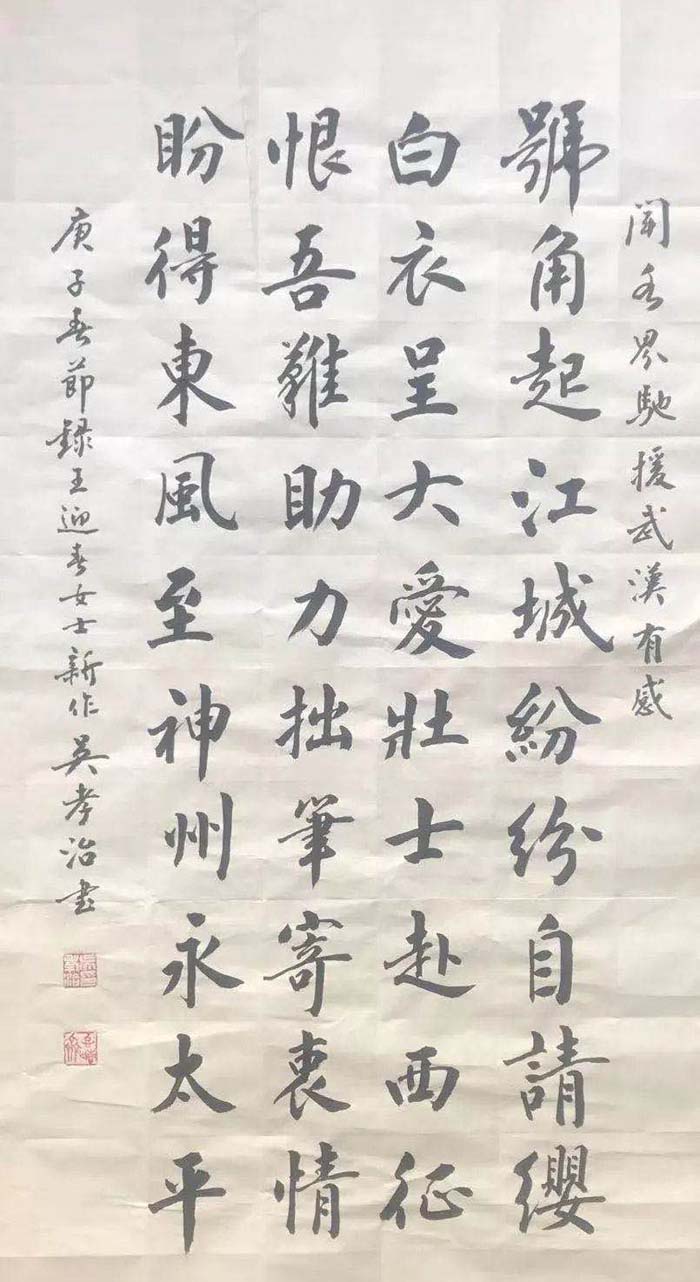 聞各界馳援武漢有感
號角起江城紛紛自請纓
白衣呈大愛壯士赴西征
恨吾難助力拙筆寄衷情
盼得東風至神州永太平
庚子春節録王迎春女士新作吴孝治書